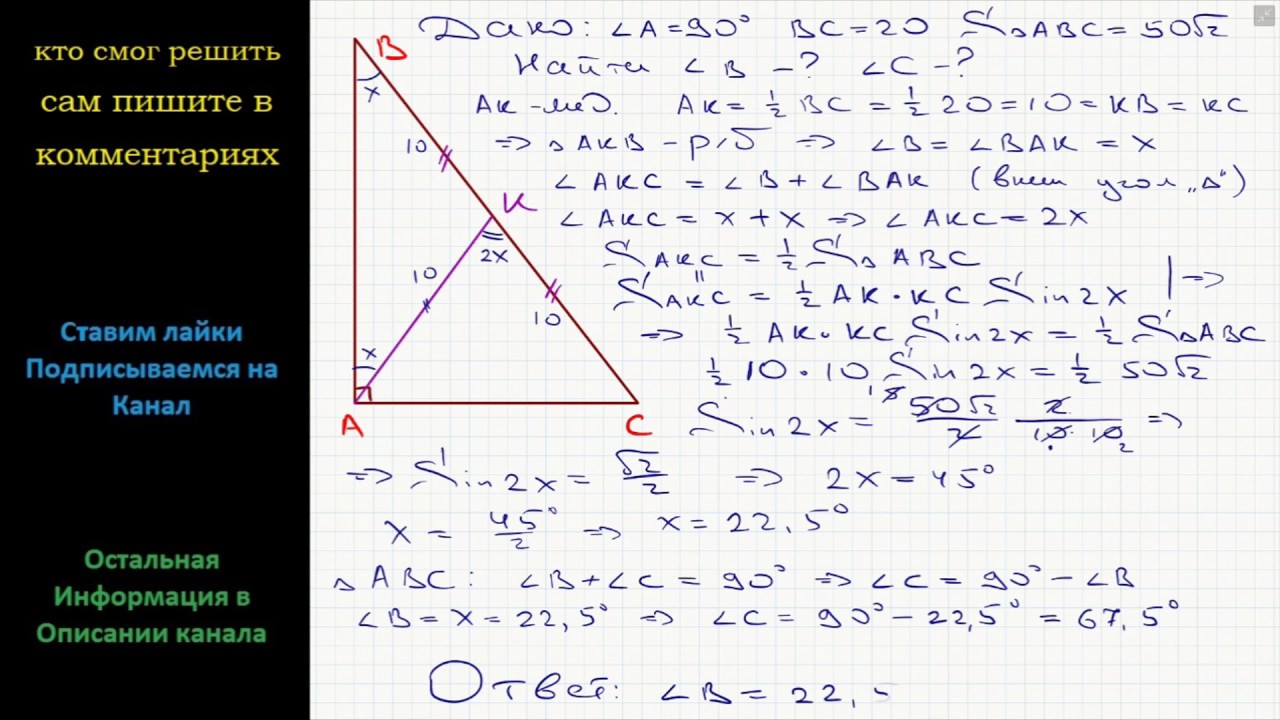 кто смог решить
сам пишите в
комментариях
Ставим лайки
Подписываемся на
Канал
Остальная
Информация в
Описании канала
Дано: ∠A=90° BC=20 S△ABC=50√2
Найти ∠B-? ∠C-?
AK-мед. AK=½BC=½20=10=KB=KC
⇒ △AKB-р/б ⇒ ∠B=∠BAK=x
∠AKC=∠B+∠BAK (внеш угол „△")
∠AKC=x+x ⇒ ∠AKC=2x
SAKC=½S△ABC
SAKC=½AK·KC Sin2x |⇒
⇒ ½AK·KC Sin2x=½S△ABC
½10·10 Sin2x=½50√2
Sin2x= 50√2/2 2/10·10 ⇒
⇒ Sin2x=√2/2 ⇒ 2x=45°
x=45°/2 ⇒ x=22,5°
△ABC: ∠B+∠C=90° ⇒ ∠C=90°-∠B
∠B=x=22,5° ⇒ ∠C=90°-22,5°=67,5°
Ответ: ∠B=22,5
B
x
10
K
2x
10
10
x
A
C